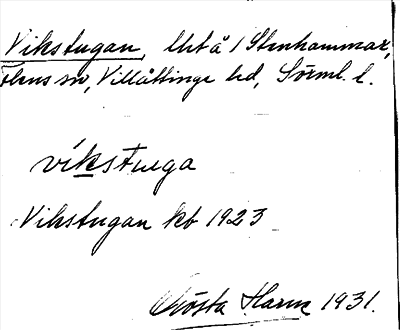 Vikstugan, Utå / Stenhammar,
Flens sn, Villåttinge hd, Sörml. l.
vikstuga
Vikstugan kb 1923
Gösta Harm 1931.